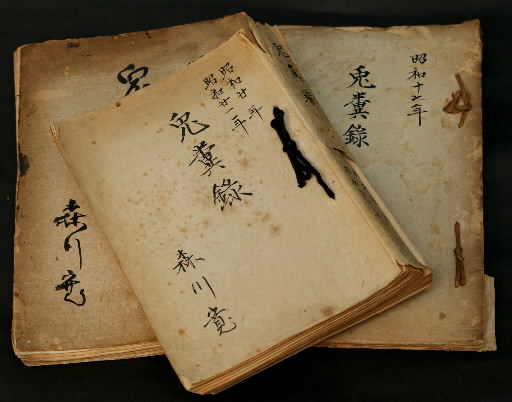 昭和廿年
昭和廿一年
兎糞錄
森川寛
昭和十七年
兎糞錄
兎
森川寛
兎糞